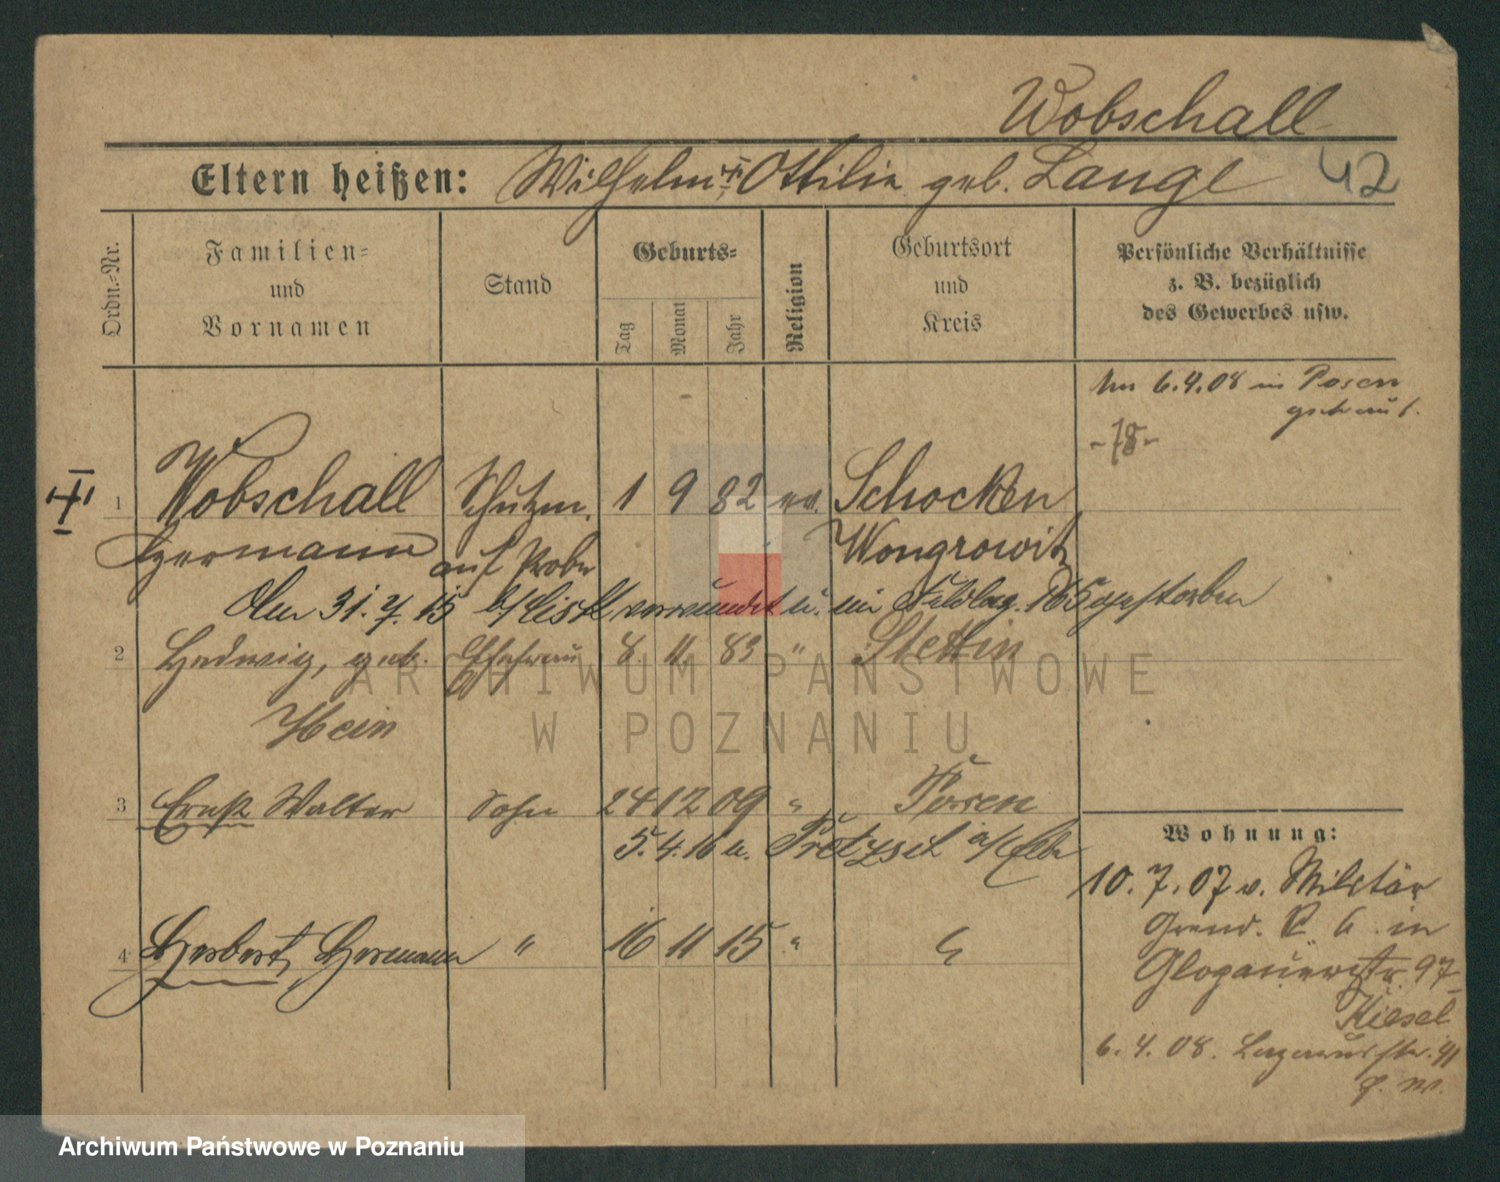 Wobschall
Eltern heißen: Wilhelm Ottilie geb. Lange 42
Ordn.-Nr.
Familien-
und
Vornamen
Stand
Geburts-
Tag
Monat
Jahr
Religion
Geburtsort
und
Kreis
Persönliche Verhältnisse
z. B. bezüglich
des Gewerbes usw.
6.4.08 in Posen
getraut.
1 Wobschall Schutzm. 1 9 82 ev. Schocken
Hermann auf Probe Wongrowitz
Am 31.7.15 verwundet u. im Feldlaz. gestorben
2 Hedwig, geb. Ehefrau 8. 11. 83 " Stettin
Hein
3 Ernst Walter Sohn 24 12 09 " Posen
5.4.16 n. a/Elbe
4 Herbert, Hermann " 16 11 15 "
Wohnung:
10.7.07 v. Militär
Grend. R 6 in
Glogauerstr. 97
Kiesel
6.4.08. Lazarusstr. 41
ARCHIWUM PAŃSTWOWE
W POZNANIU
Archiwum Państwowe w Poznaniu